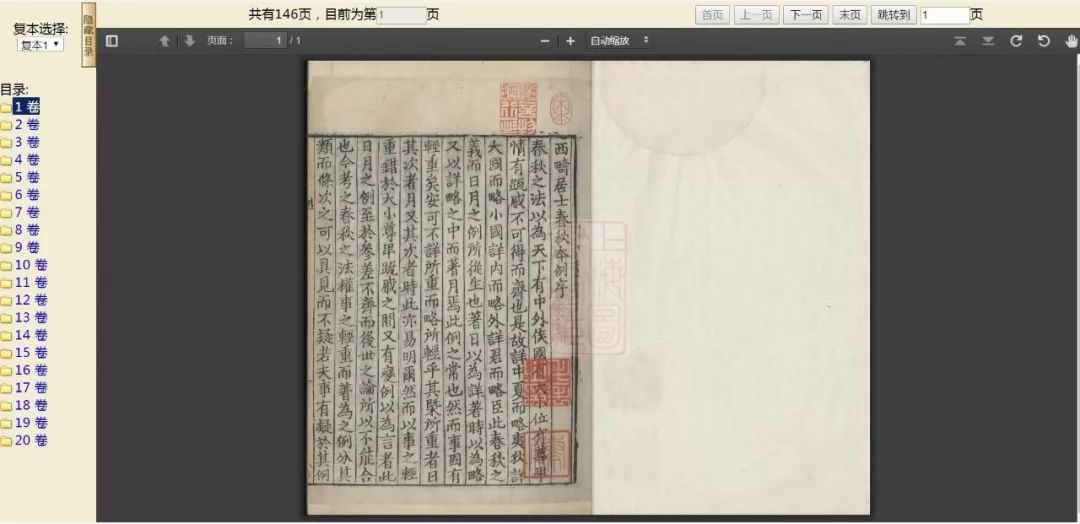 复本选择:
复本1
隐藏目录
共有146页，目前为第1页
首页 上一页 下一页 末页 跳转到 1 页
页面： 1 / 1
自动缩放
目录:
1 卷
2 卷
3 卷
4 卷
5 卷
6 卷
7 卷
8 卷
9 卷
10 卷
11 卷
12 卷
13 卷
14 卷
15 卷
16 卷
17 卷
18 卷
19 卷
20 卷
西疇居士春秋本例序
春秋之法以為天下有中外侯國有大小位有尊卑
情有疏戚不可得而齊也是故詳中夏而略夷狄詳
大國而略小國詳內而略外詳君而略臣此春秋之
義而日月之例所從生也著日以為詳著時以為略
又以詳略之中而著月焉此例之常也然而事固有
輕重矣安可不詳所重而略所輕乎其槩所重者日
其次者月又其次者時此亦易明爾然而以事之輕
重錯於大小尊卑疏戚之間又有變例以為言者此
日月之例至於參差不齊而後世之論所以不能合
也今考之春秋之法權事之輕重而著為之例分其
類而條次之可以具見而不疑若夫事有疑於其例